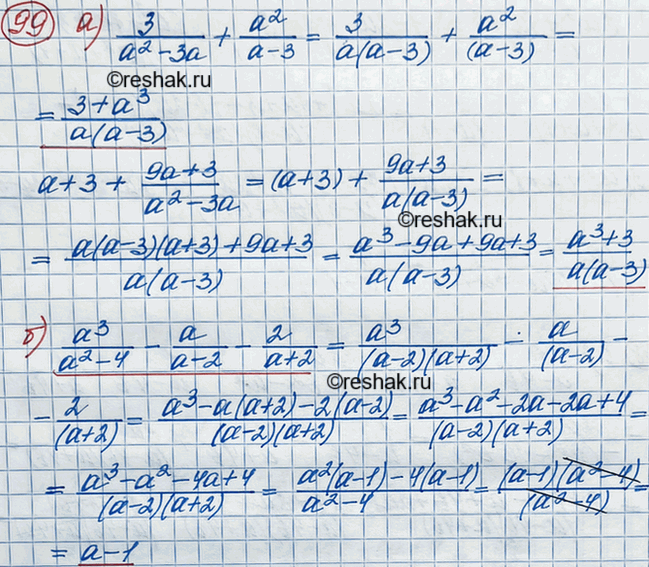 99 а) 3/(a²-3a) + a²/(a-3) = 3/(a(a-3)) + a²/(a-3) =
©reshak.ru
= (3+a³)/(a(a-3))
a+3 + (9a+3)/(a²-3a) = (a+3) + (9a+3)/(a(a-3)) =
©reshak.ru
= (a(a-3)(a+3)+9a+3)/(a(a-3)) = (a³-9a+9a+3)/(a(a-3)) = (a³+3)/(a(a-3))
б) a³/(a²-4) - a/(a-2) - 2/(a+2) = a³/((a-2)(a+2)) - a/(a-2) -
©reshak.ru
- 2/(a+2) = (a³-a(a+2)-2(a-2))/((a-2)(a+2)) = (a³-a²-2a-2a+4)/((a-2)(a+2)) =
= (a³-a²-4a+4)/((a-2)(a+2)) = (a²(a-1)-4(a-1))/(a²-4) = ((a-1)(a²-4))/(a²-4) =
= a-1